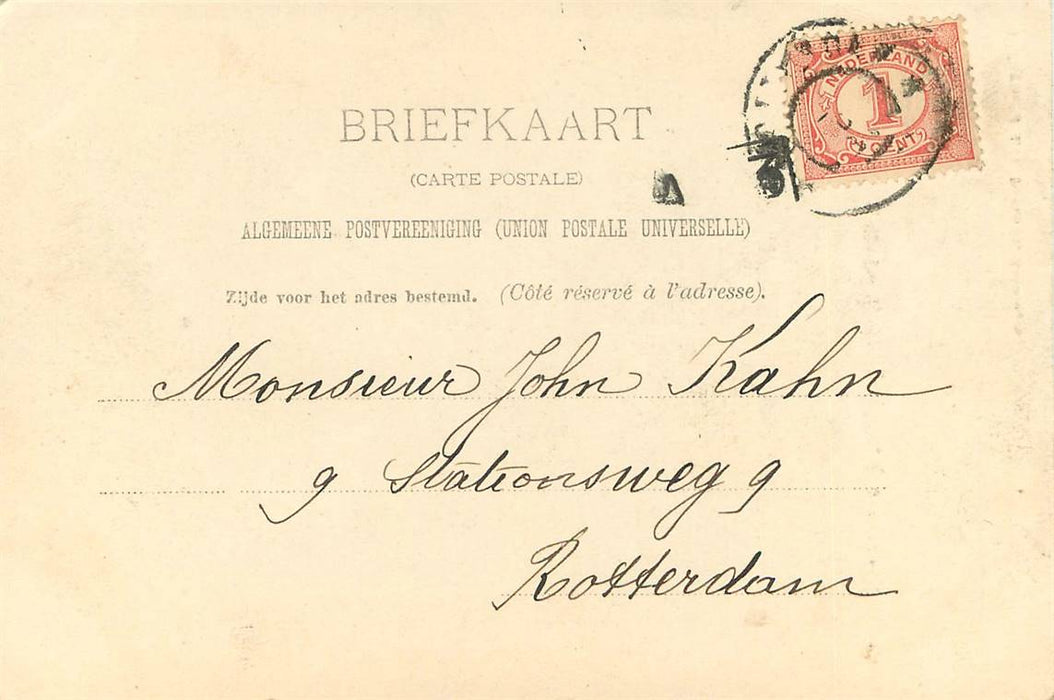 BRIEFKAART
(CARTE POSTALE)
ALGEMEENE POSTVEREENIGING (UNION POSTALE UNIVERSELLE)
Zijde voor het adres bestemd. (Côté réservé à l'adresse).
NEDERLAND
1
CENT
Monsieur John Kahn
9 Stationsweg 9
Rotterdam